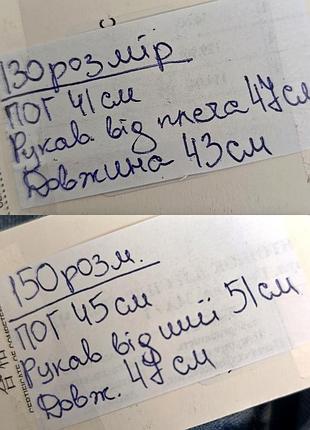 130 розмір
ПОГ 41 см
Рукав від плеча 47 см
Довжина 43 см
150 розм.
ПОГ 45 см
Рукав від шиї 51 см
Довж. 47 см